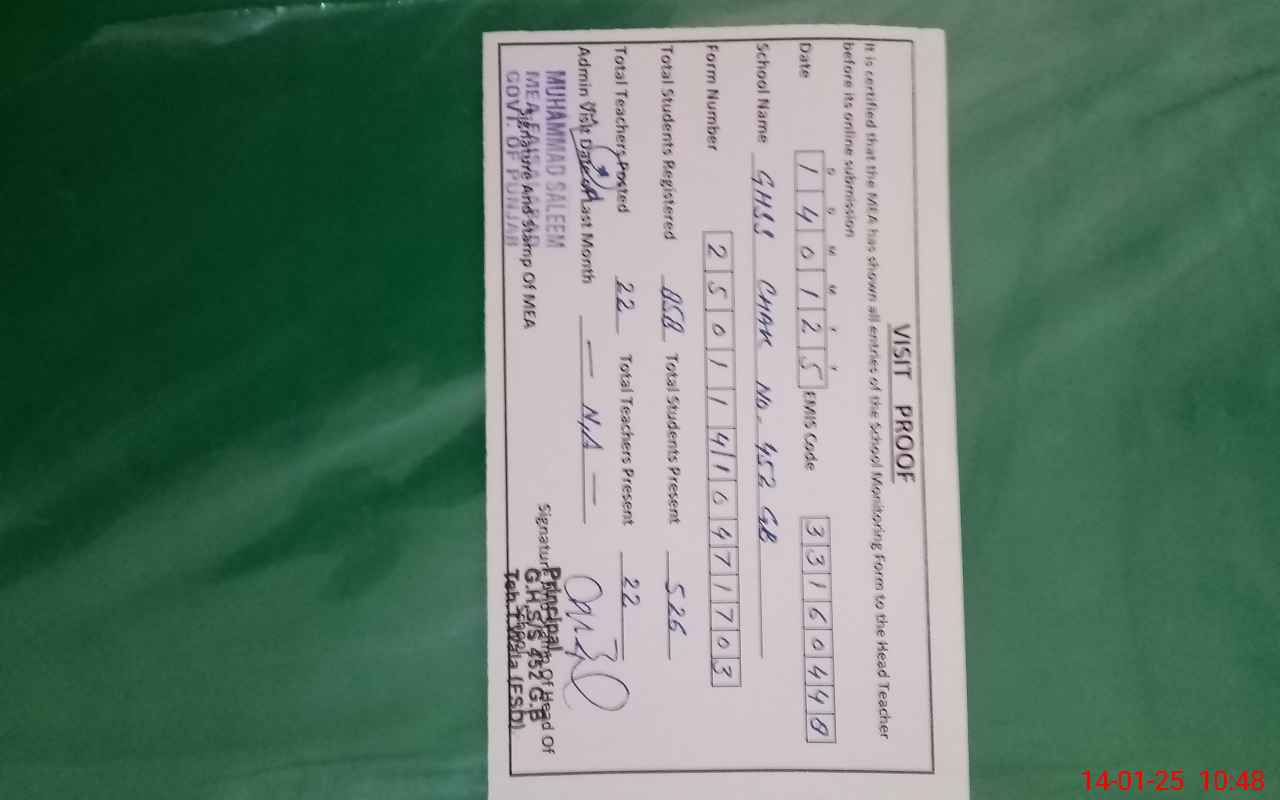 VISIT PROOF
It is certified that the MEA has shown all entries of the School Monitoring Form to the Head Teacher
before its online submission
D D M M Y Y
Date 1 4 0 1 2 5 EMIS Code 3 3 1 6 0 4 4 8
School Name GHSS CHAK No. 452 GB
Form Number 2 5 0 1 1 4 1 0 4 7 1 7 0 3
Total Students Registered 858 Total Students Present 526
Total Teachers Posted 22 Total Teachers Present 22
Admin Visit Date of Last Month — N.A —
MUHAMMAD SALEEM
MEA FAISALABAD
GOVT. OF PUNJAB
Signature And Stamp Of MEA
Signature And Stamp Of Head Of
School
Principal
G.H.S/S 452 G.B
Teh.T.Wala (FSD)
14-01-25 10:48